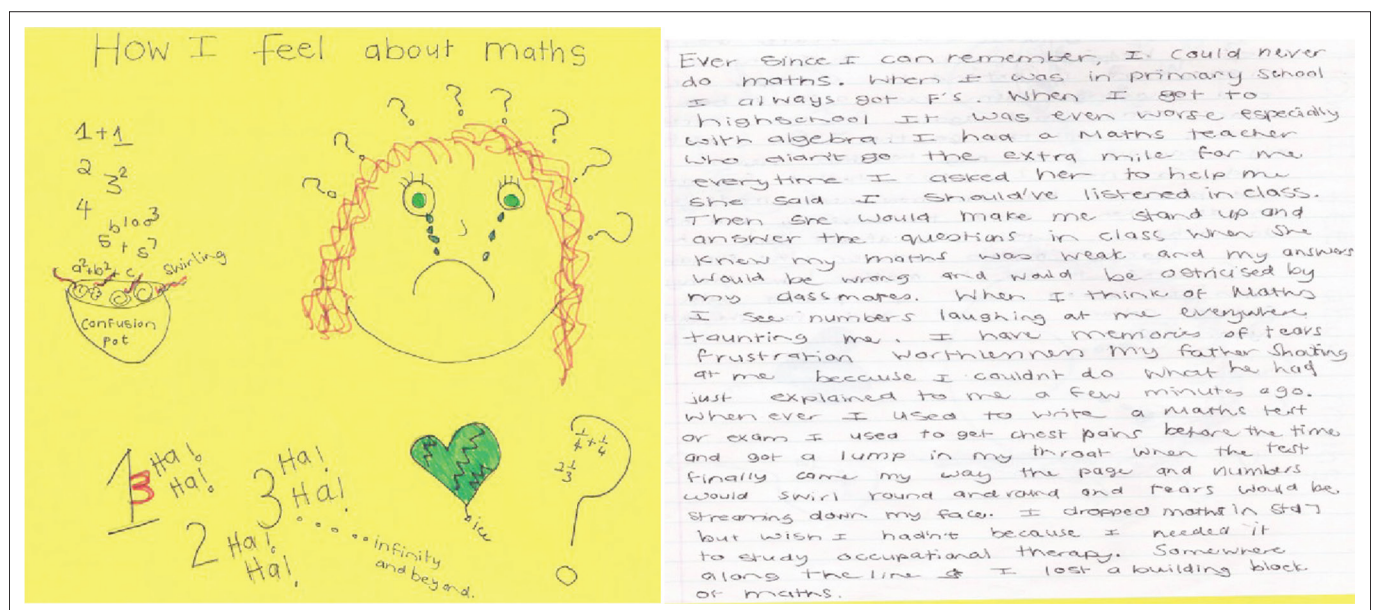 How I feel about maths
1+1
2 3²
4
bloo³
5 + 5⁷
a²+b²+c
swirling
confusion
pot
? ? ? ? ? ? ? ? ?
1 Ha!
Ha!
2 Ha!
Ha!
3 Ha!
Ha!
infinity
and beyond.
ice
1/4 + 1/4
2 1/3
Ever since I can remember, I could never
do maths. When I was in primary school
I always got F's. When I got to
highschool It was even worse especially
with algebra. I had a Maths teacher
who didn't go the extra mile for me
everytime I asked her to help me
she said I should've listened in class.
Then she would make me stand up and
answer the questions in class when she
knew my maths was weak and my answers
would be wrong and would be ostricised by
my classmates. When I think of Maths
I see numbers laughing at me everywhere
taunting me. I have memories of tears
frustration worthlennen my father shouting
at me because I couldnt do what he had
just explained to me a few minutes ago.
When ever I used to write a maths test
or exam I used to get chest pains before the time
and got a lump in my throat when the test
finally came my way the page and numbers
would swirl round and round and tears would be
streaming down my face. I dropped maths in std 7
but wish I hadn't because I needed it
to study occupational therapy. Somewhere
along the line I lost a building block
of maths.